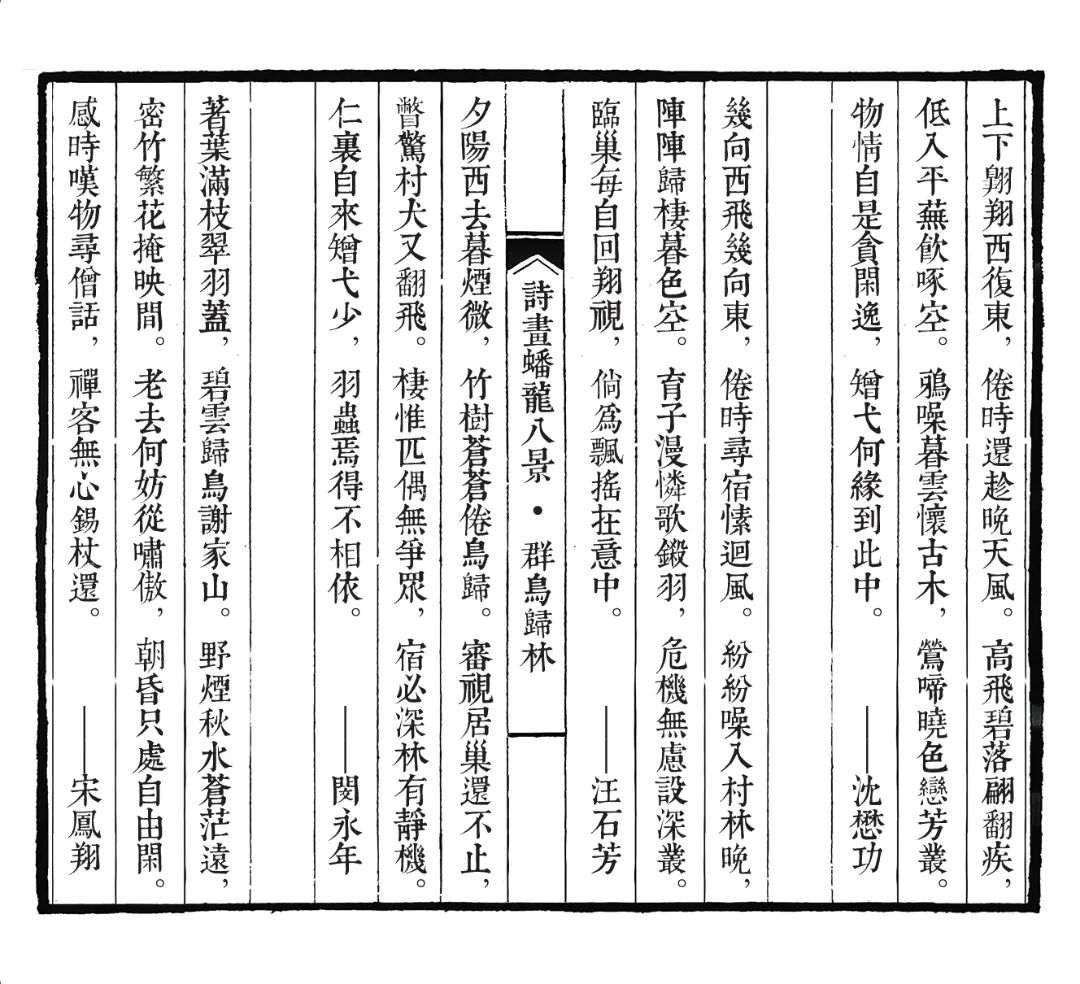 上下翺翔西復東，倦時還趁晚天風。高飛碧落翩翻疾，
低入平蕪飲啄空。鴉噪暮雲懷古木，鶯啼曉色戀芳叢。
物情自是貪閑逸，矰弋何緣到此中。——沈懋功
幾向西飛幾向東，倦時尋宿愫迴風。紛紛噪入村林晚，
陣陣歸棲暮色空。育子漫憐歌鍛羽，危機無慮設深叢。
臨巢每自回翔視，倘為飄搖在意中。——汪石芳
詩畫蟠龍八景·群鳥歸林
夕陽西去暮煙微，竹樹蒼蒼倦鳥歸。審視居巢還不止，
瞥驚村犬又翻飛。棲惟匹偶無爭眾，宿必深林有靜機。
仁裏自來矰弋少，羽蟲焉得不相依。——閔永年
萫葉滿枝翠羽蓋，碧雲歸鳥謝家山。野煙秋水蒼茫遠，
密竹繁花掩映間。老去何妨從嘯傲，朝昏只處自由閑。
感時嘆物尋僧話，禪客無心錫杖還。——宋鳳翔